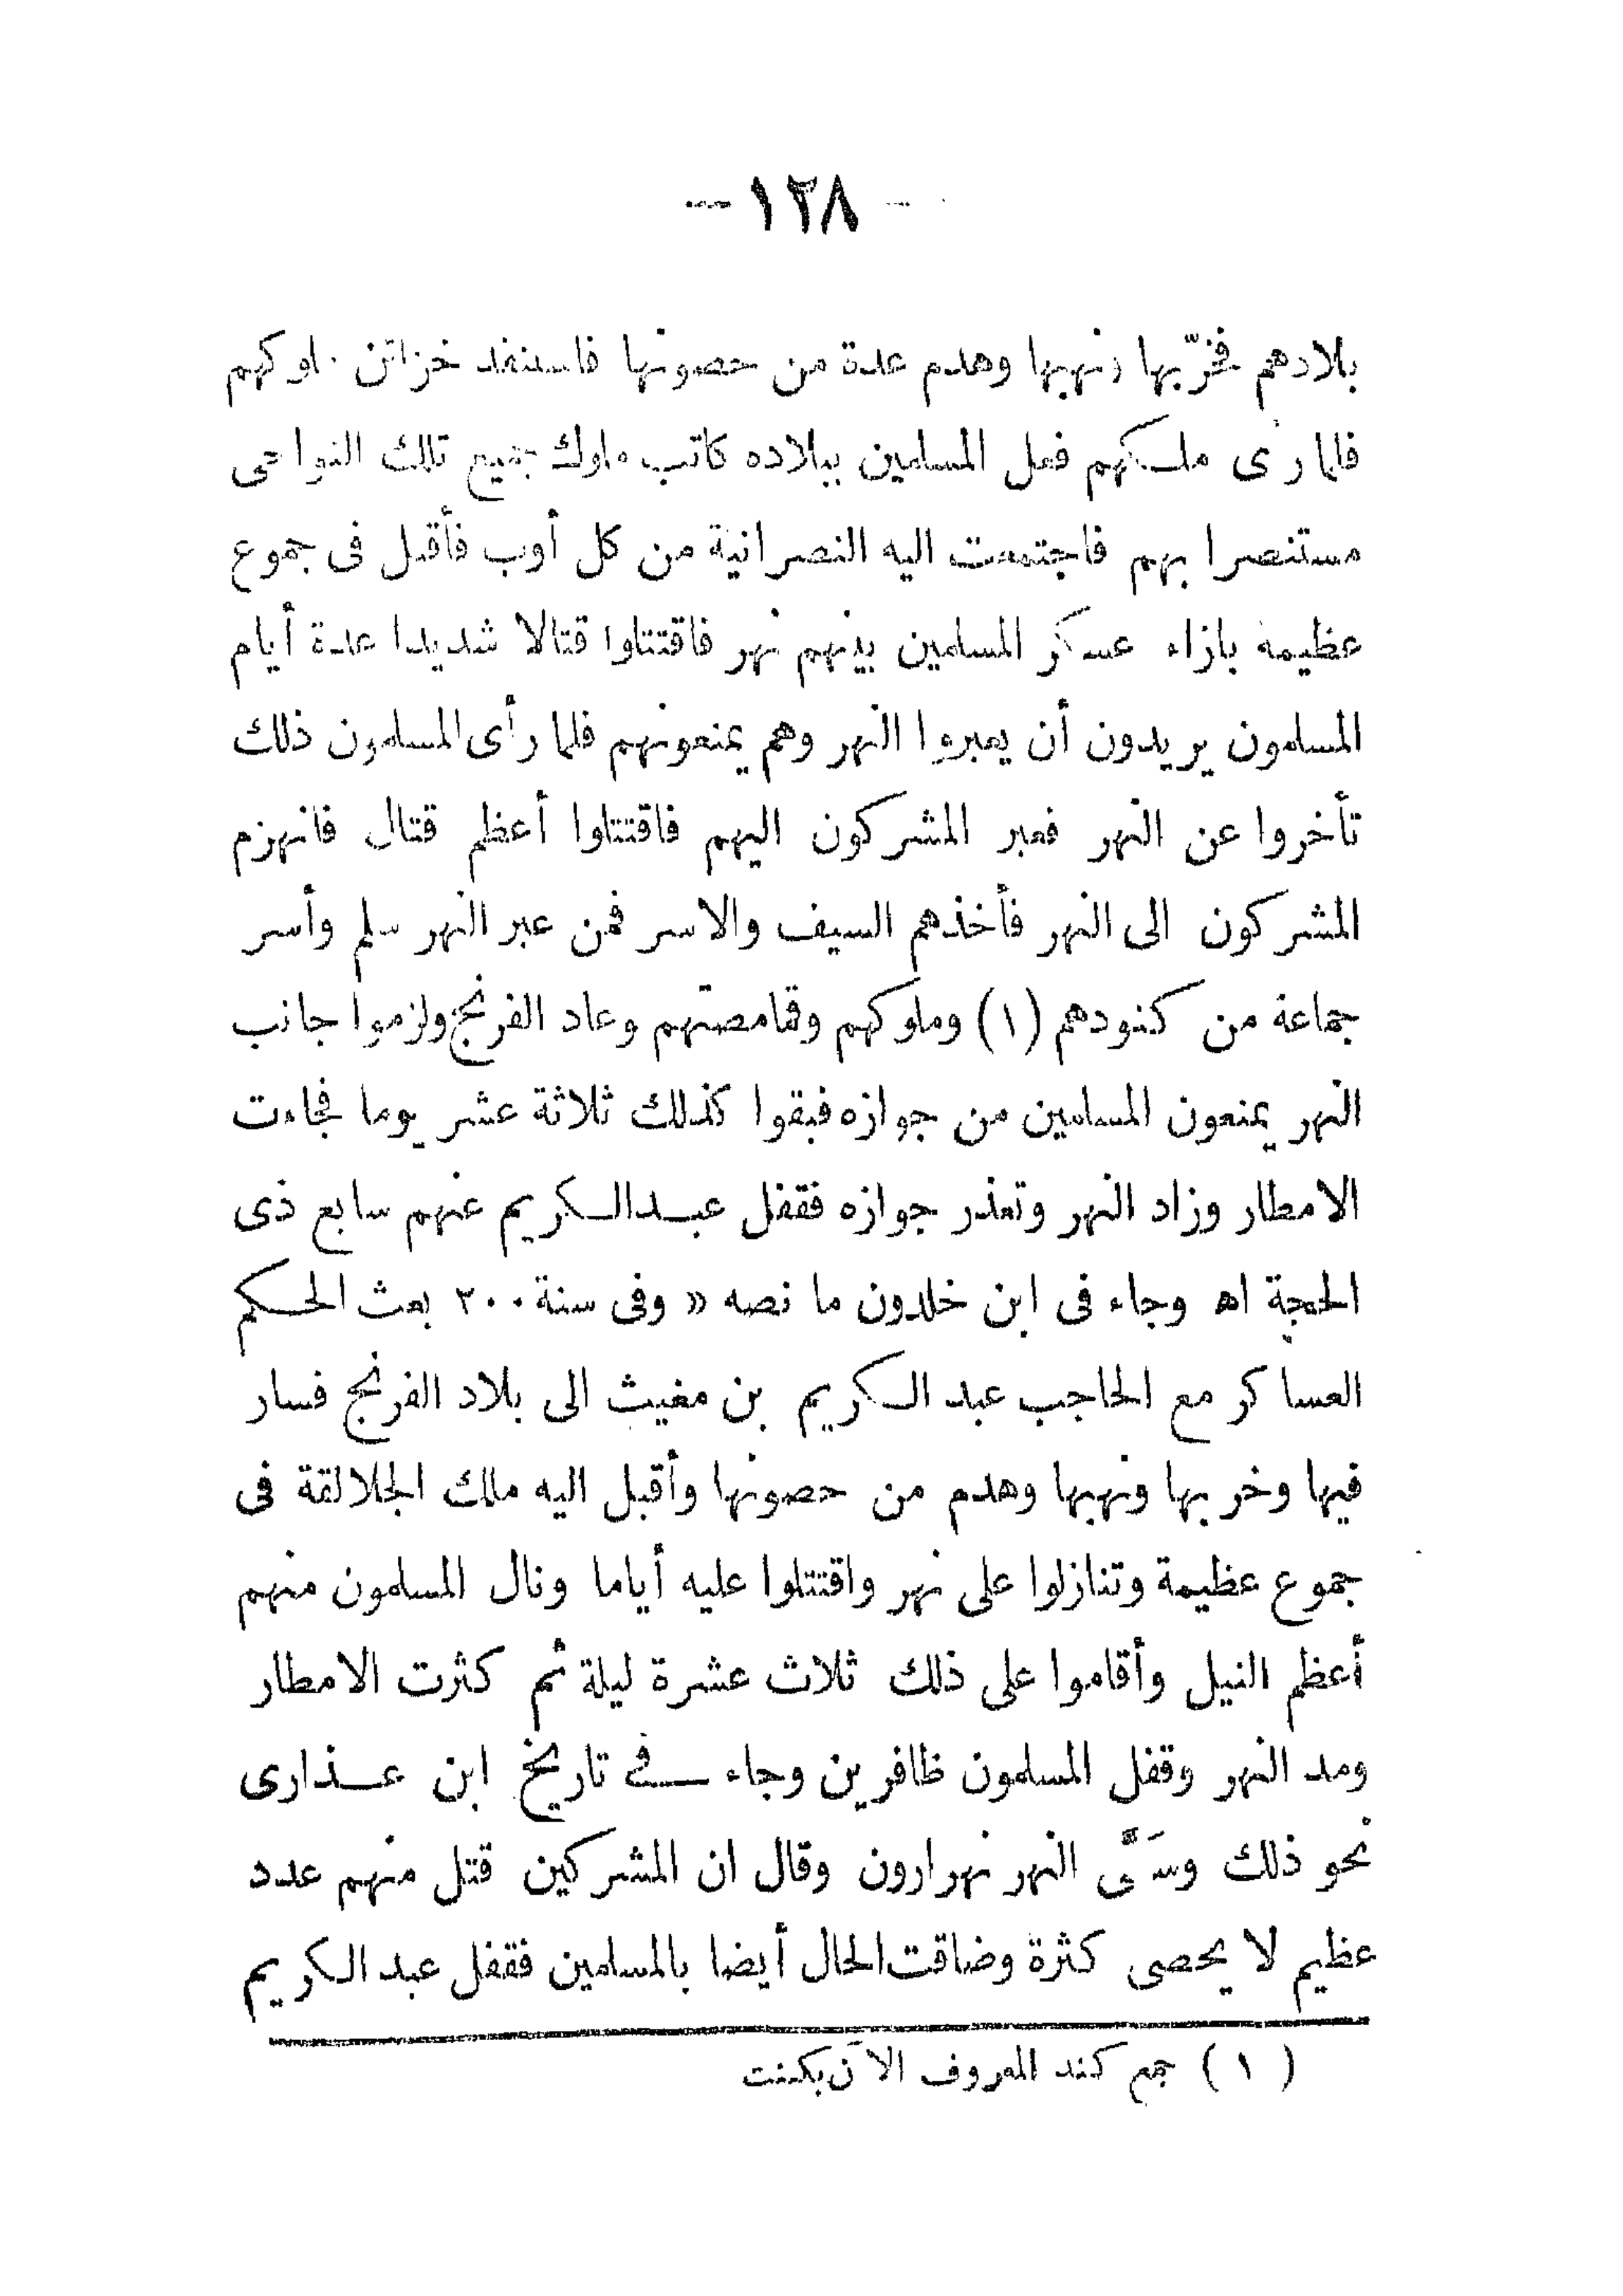 - ١٢٨ -
بلادهم فخرّبها ونهبها وهدم عدة من حصونها فاستنفد خزائن ملوكهم
فلما رأى ملكهم فعل المسلمين ببلاده كاتب ملوك جميع تلك النواحى
مستنصرا بهم فاجتمعت اليه النصرانية من كل أوب فأقبل فى جموع
عظيمة بازاء عسكر المسلمين بينهم نهر فاقتتلوا قتالا شديدا عدة أيام
المسلمون يريدون أن يعبروا النهر وهم يمنعونهم فلما رأى المسلمون ذلك
تأخروا عن النهر فعبر المشركون اليهم فاقتتلوا أعظم قتال فانهزم
المشركون الى النهر فأخذهم السيف والاسر فمن عبر النهر سلم وأسر
جماعة من كنودهم (١) وملوكهم وقمامصتهم وعاد الفرنج ولزموا جانب
النهر يمنعون المسلمين من جوازه فبقوا كذلك ثلاثة عشر يوما فجاءت
الامطار وزاد النهر وتعذر جوازه فقفل عبدالكريم عنهم سابع ذى
الحجة اه وجاء فى ابن خلدون ما نصه « وفى سنة ٢٠٠ بعث الحكم
العساكر مع الحاجب عبد الكريم بن مغيث الى بلاد الفرنج فسار
فيها وخربها ونهبها وهدم من حصونها وأقبل اليه ملك الجلالقة فى
جموع عظيمة وتنازلوا على نهر واقتتلوا عليه أياما ونال المسلمون منهم
أعظم النيل وأقاموا على ذلك ثلاث عشرة ليلة ثم كثرت الامطار
ومد النهر وقفل المسلمون ظافرين وجاء فى تاريخ ابن عذارى
نحو ذلك وسمَّى النهر نهر ارون وقال ان المشركين قتل منهم عدد
عظيم لا يحصى كثرة وضاقت الحال أيضا بالمسلمين فقفل عبد الكريم
( ١ ) جمع كند المعروف الآن بكنت